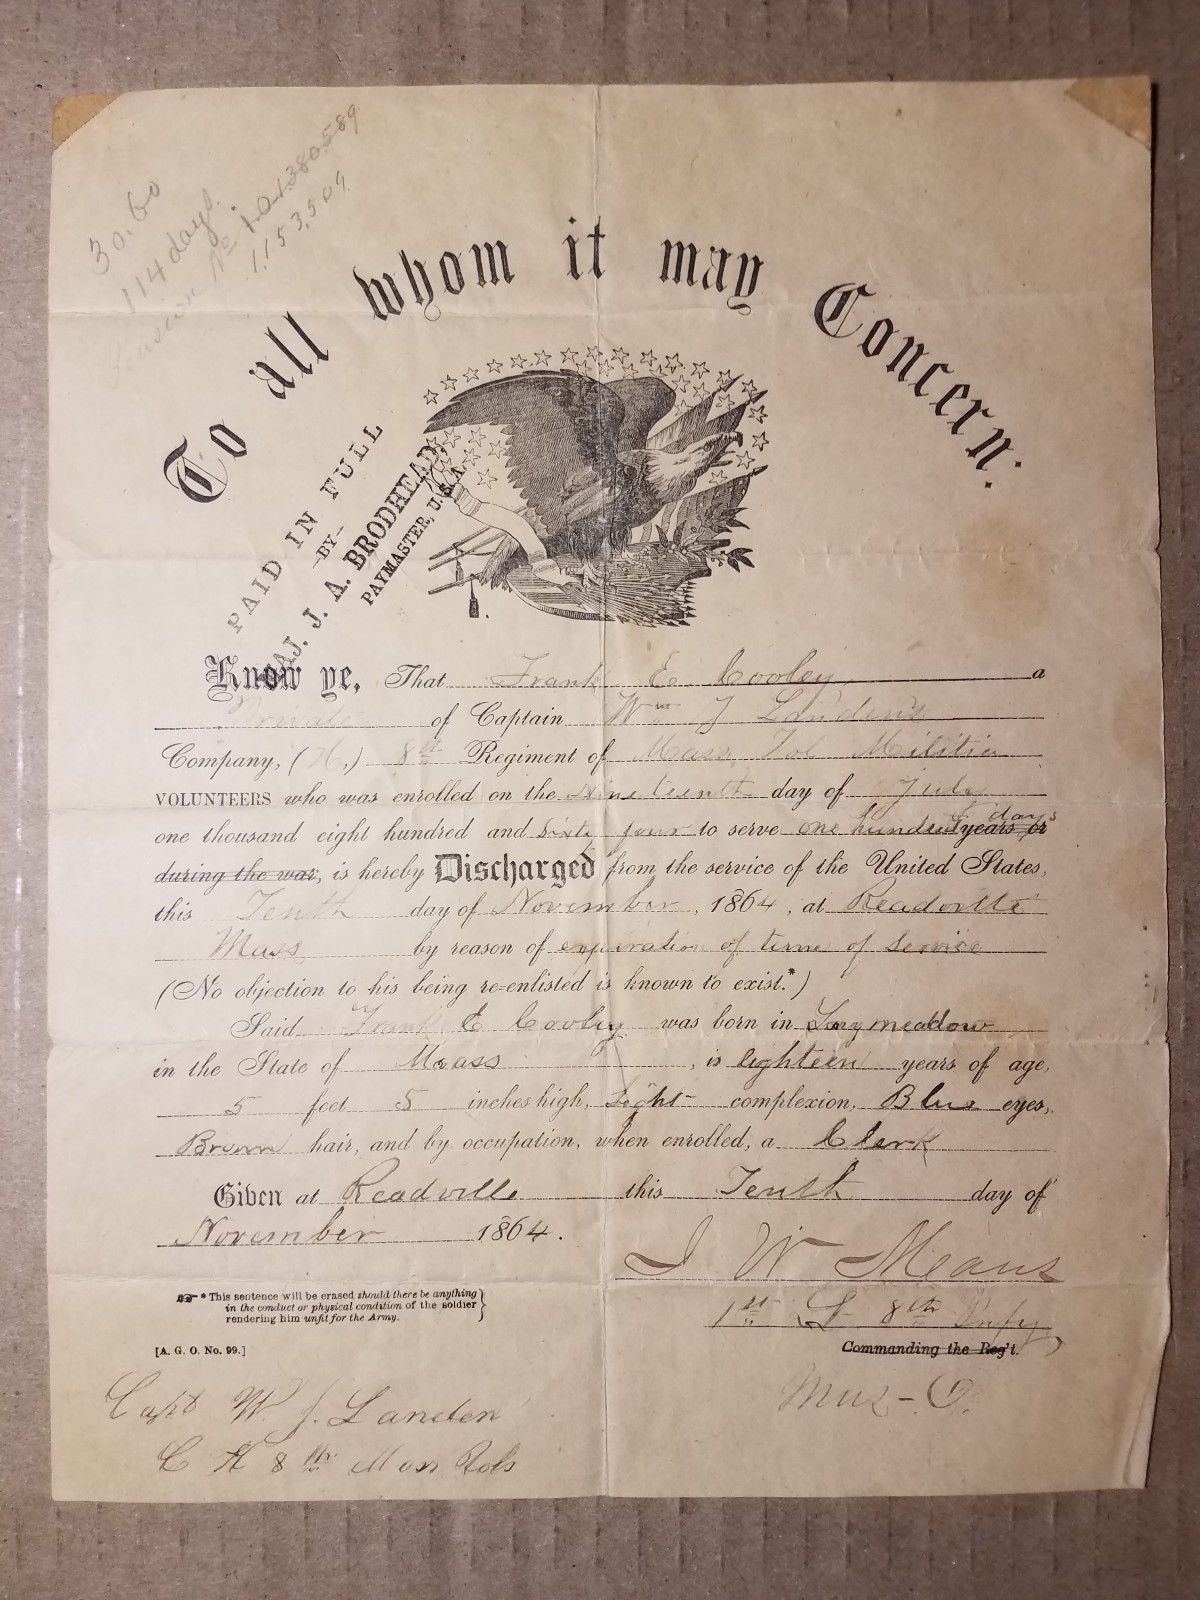 30.60
114 days.
Pension No 1.380.589
1,153,509
To all whom it may Concern:
PAID IN FULL
-BY-
MAJ. J. A. BRODHEAD,
PAYMASTER, U.S.A.
Know ye, That Frank E Cooley a
Private of Captain Wm J Landen's
Company, (H,) 8th Regiment of Mass Vol Militia
VOLUNTEERS who was enrolled on the nineteenth day of July
one thousand eight hundred and sixty four to serve one hundred days years or
during the war, is hereby Discharged from the service of the United States,
this Tenth day of November, 1864, at Readville
Mass by reason of expiration of term of service
(No objection to his being re-enlisted is known to exist.*)
Said Frank E Cooley was born in Longmeadow
in the State of Mass , is eighteen years of age,
5 feet 5 inches high, Light complexion, Blue eyes,
Brown hair, and by occupation, when enrolled, a Clerk
Given at Readville this Tenth day of
November 1864.
J W Means
1st Lt 8th Infy
☞ * This sentence will be erased should there be anything
in the conduct or physical condition of the soldier
rendering him unfit for the Army.
[A. G. O. No. 99.]
Commanding the Reg't.
Mus-O.
Capt W. J. Landen
C H 8th Mass Vols